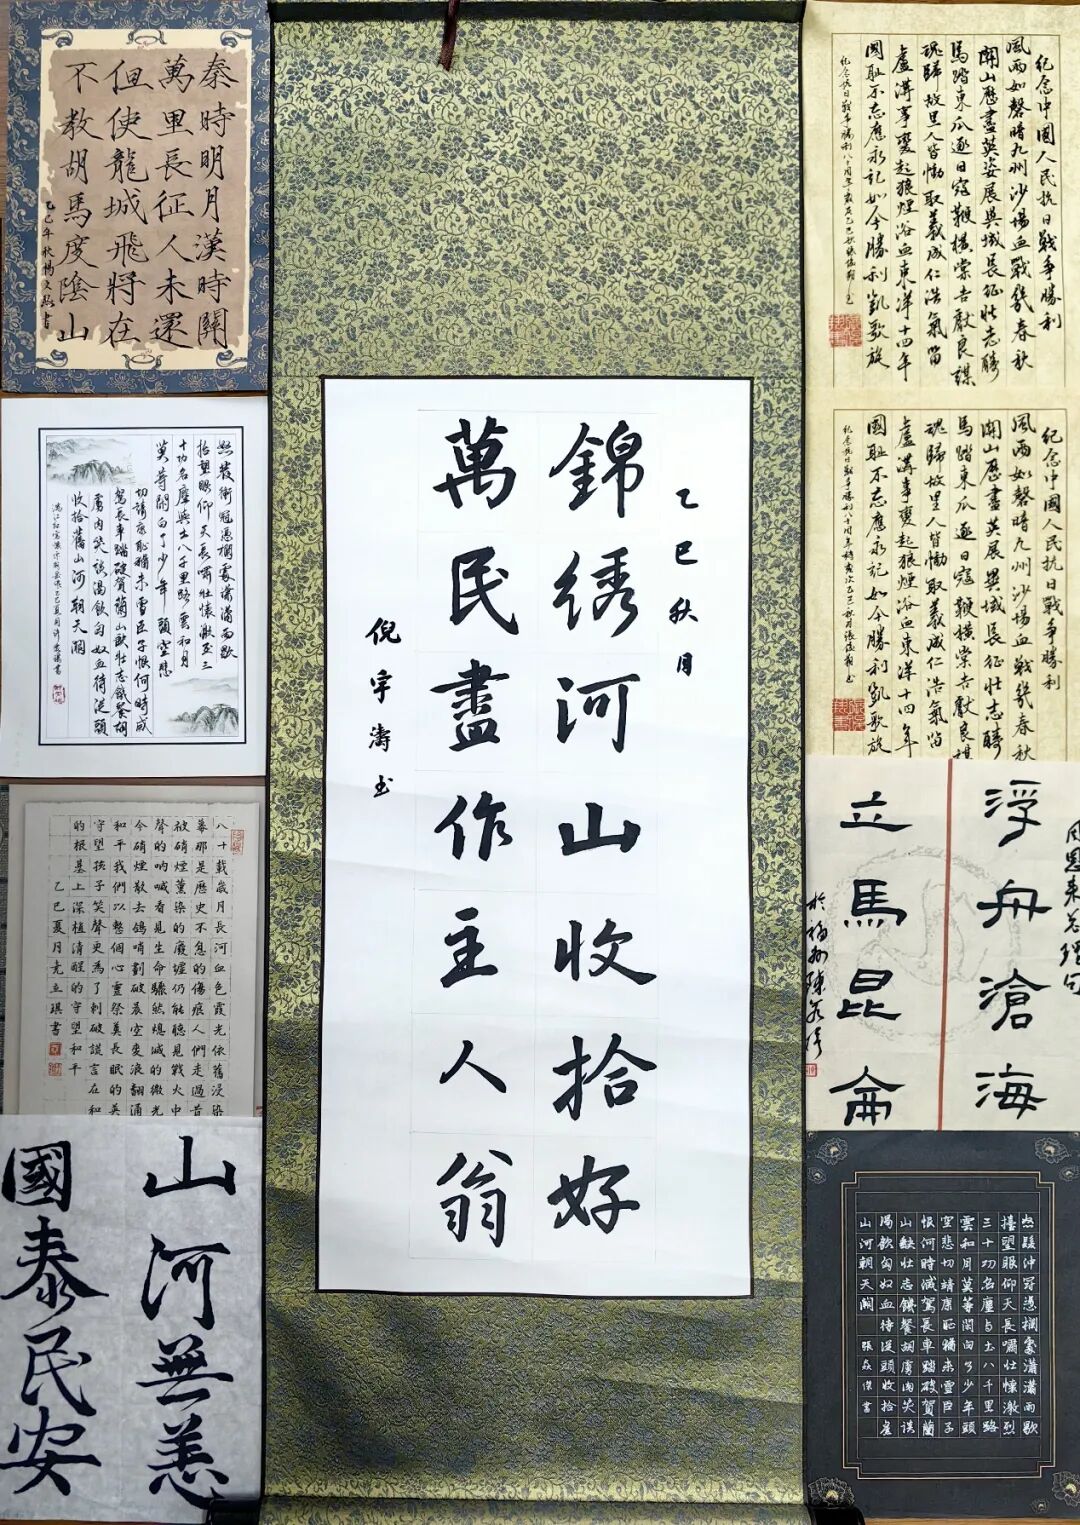 錦绣河山收拾好
萬民盡作主人翁
乙巳秋月
倪宇濤书
秦時明月漢時關
萬里長征人未還
但使龍城飛將在
不教胡馬度陰山
乙巳年秋楊文
書
怒髮衝冠憑欄處瀟瀟雨歇
抬望眼仰天長嘯壯懷激烈三
十功名塵與土八千里路雲和月
莫等閒白了少年頭空悲
切靖康恥猶未雪臣子恨何時滅
駕長車踏破賀蘭山缺壯志飢餐胡
虜肉笑談渴飲匈奴血待從頭
收拾舊山河朝天闕
八十載歲月長河血色霞光依舊浸染
幕那是歷史不息的傷痕人們走過昔
被硝煙薰染的廢墟仍能聽見戰火中
聲的吶喊看見生命驟然熄滅的微光
今硝煙散去鴿哨劃破長空麥浪翻涌
和平我們以整個心靈祭奠長眠的英
守望孩子笑聲更為了刺破謊言在和
的根基上深植清醒的守望和平
乙巳夏月
立琪書
山河無恙
國泰民安
紀念中國人民抗日戰爭勝利
風雨如磐暗九州沙場血戰幾春秋
關山歷盡英姿展異域長征壯志酬
馬踏東瓜逐日寇鞭橫棠吉獻良謀
魂歸故里人皆慟取義成仁浩氣留
盧溝事變起狼煙浴血東洋十四年
國恥不忘應永記如今勝利凱歌放
紀念中國人民抗日戰爭勝利
風雨如磐暗九州沙場血戰幾春秋
關山歷盡英展異域長征壯志酬
馬踏東瓜逐日寇鞭橫棠吉獻良謀
魂歸故里人皆慟取義成仁浩氣留
盧溝事變起狼煙浴血東洋十四年
國恥不忘應永記如今勝利凱歌放
周恩來總理句
浮舟滄海
立馬昆侖
怒髮沖冠憑欄處瀟瀟雨歇
擡望眼仰天長嘯壯懷激烈
三十功名塵与土八千里路
雲和月莫等閑白了少年頭
空悲切靖康恥猶未雪臣子
恨何時滅駕長車踏破賀蘭
山缺壯志饑餐胡虜肉笑談
渴飲匈奴血待從頭收拾舊
山河朝天闕
張森傑書